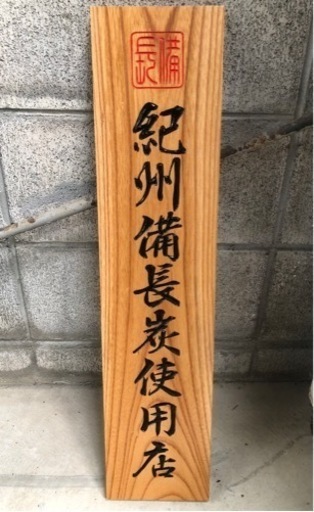 備長
紀州備長炭使用店